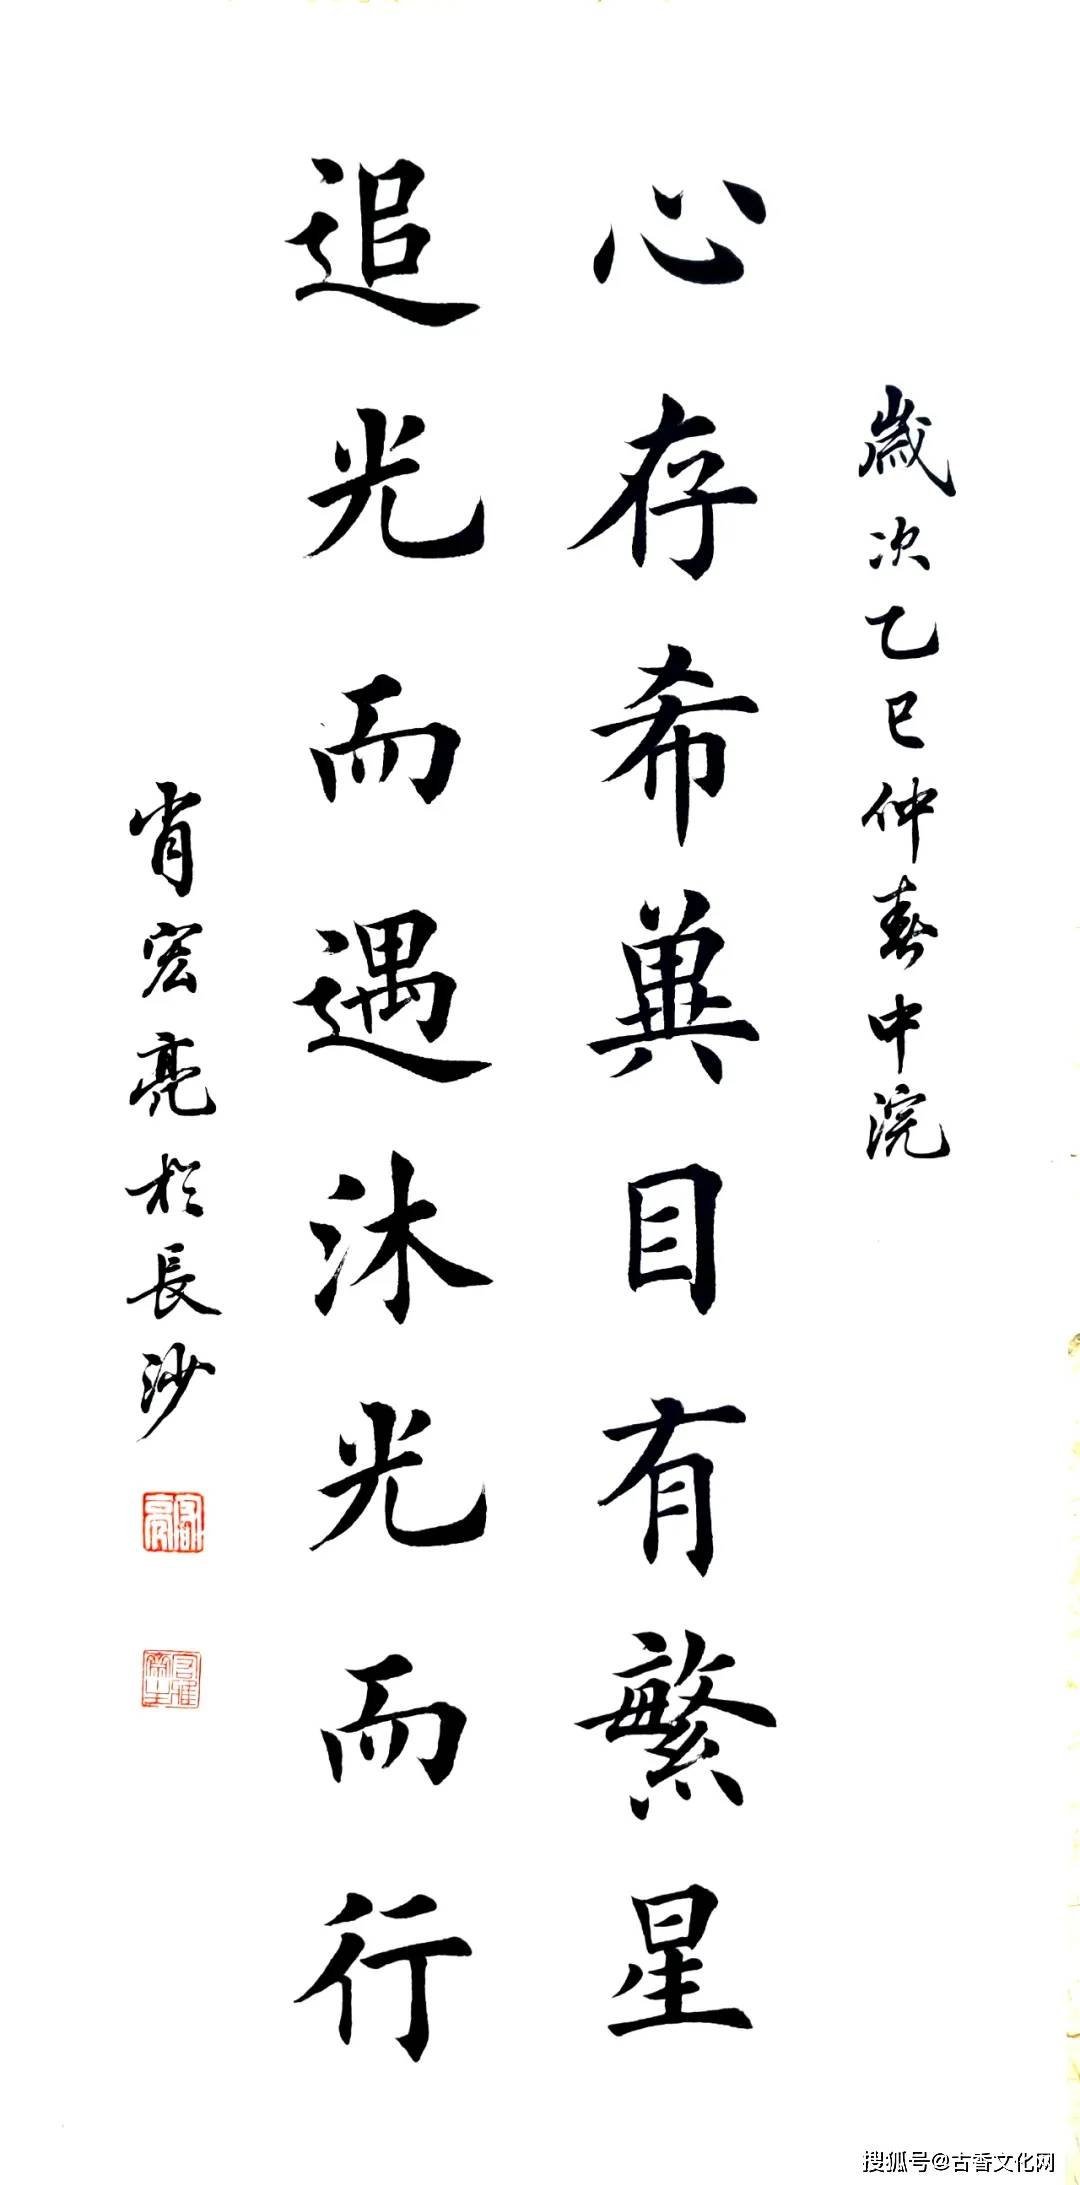 歲次乙巳仲春中浣
心存希冀目有繁星
追光而遇沐光而行
肖宏亮於長沙
搜狐号@古香文化网